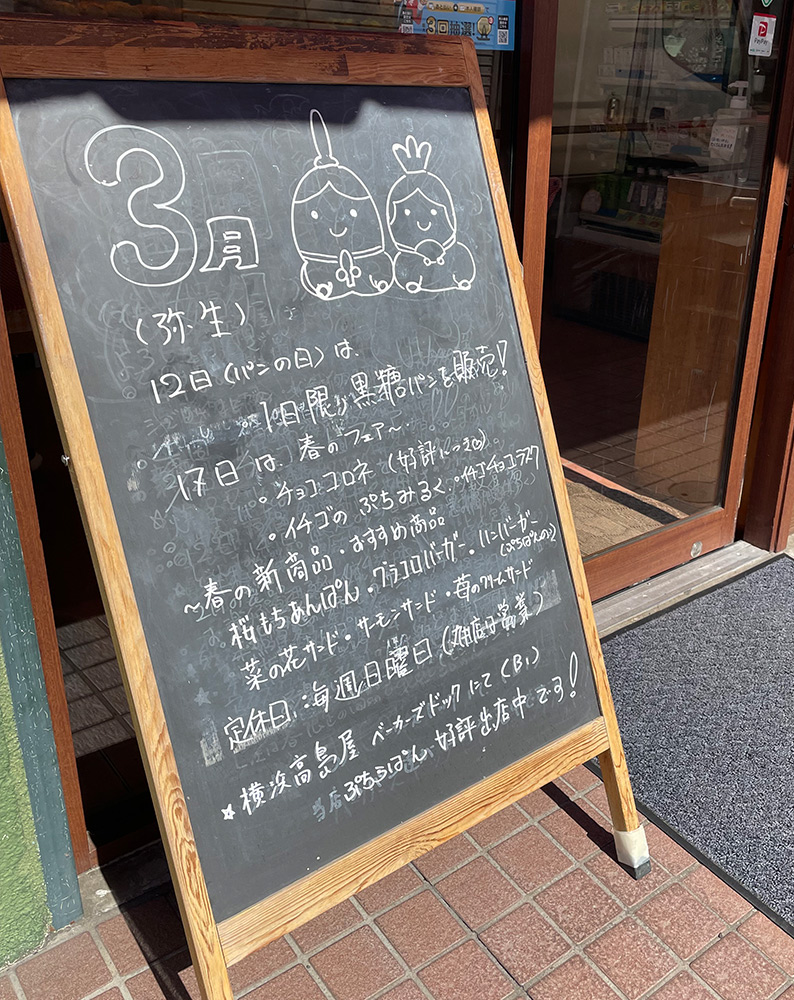 3回抽選!
PayPay
3月
(弥生)
12日(パンの日)は、
1日限り黒糖パンを販売!
17日は、春のフェア~
・チョココロネ(好評につき)
・イチゴのぷちみるく・イチゴチョコラスク
~春の新商品・おすすめ商品
桜もちあんぱん・グラコロバーガー・ハンバーガー
菜の花サンド・サーモンサンド・苺のクリームサンド
定休日:毎週日曜日(営業)
☆横浜高島屋 ベーカーズドックにて(B1)
ぷちらぱん 好評出店中です!
当店